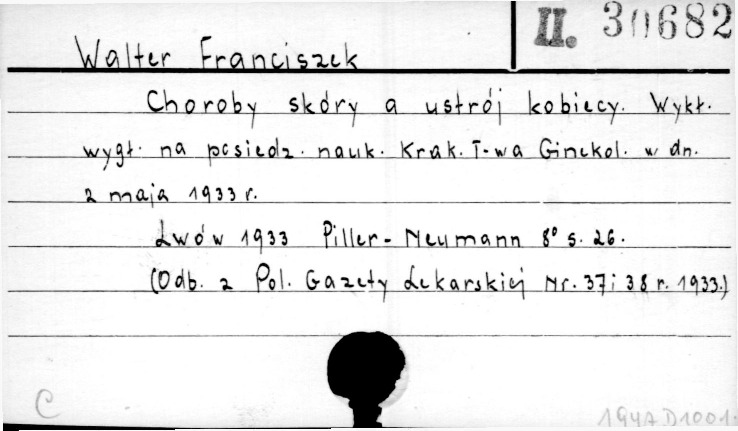 II. 30682
Walter Franciszek
Choroby skóry a ustrój kobiecy. Wykł.
wygł. na posiedz. nauk. Krak. T-wa Ginekol. w dn.
2 maja 1933 r.
Lwów 1933 Piller-Neumann 8° s. 26.
(Odb. z Pol. Gazety Lekarskiej Nr. 37 i 38 r. 1933.)
C
1947 D 1001.